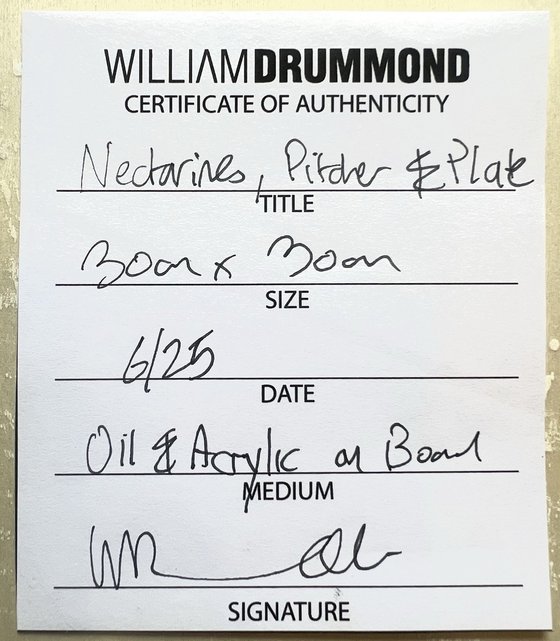 WILLIAMDRUMMOND
CERTIFICATE OF AUTHENTICITY
Nectarines, Pitcher & Plate
TITLE
30cm x 30cm
SIZE
6/25
DATE
Oil & Acrylic on Board
MEDIUM
SIGNATURE